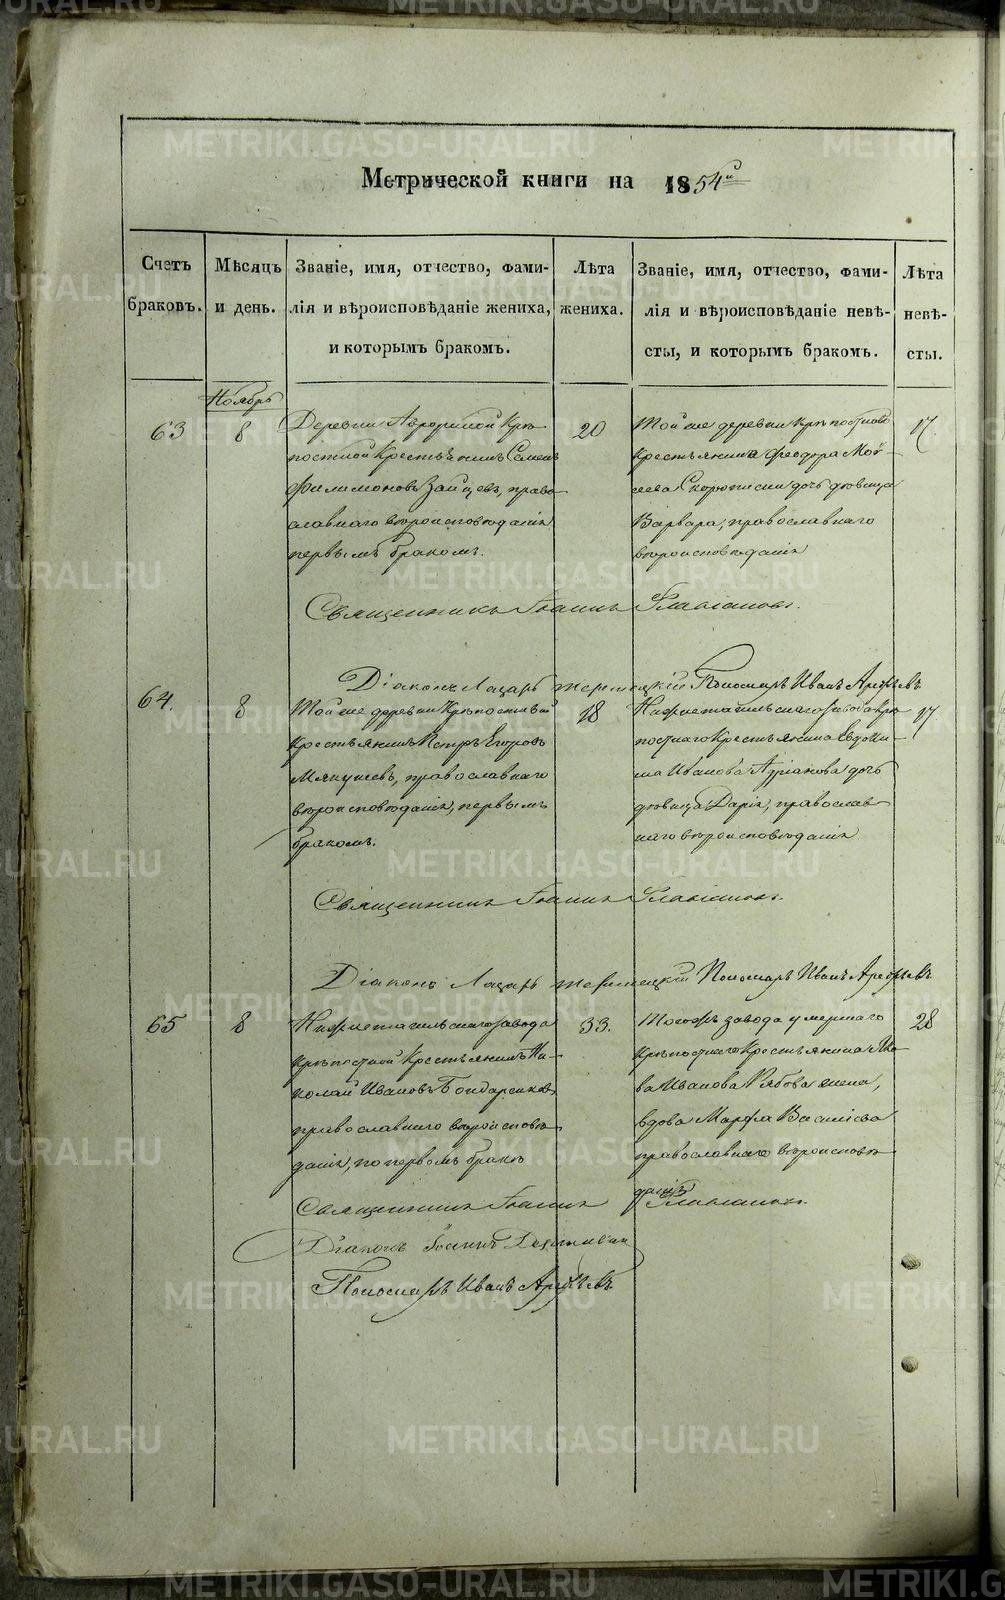 Метрической книги на 1854й
Счетъ браковъ.
Мѣсяцъ и день.
Званіе, имя, отчество, фами-
лія и вѣроисповѣданіе жениха,
и которымъ бракомъ.
Лѣта жениха.
Званіе, имя, отчество, фами-
лія и вѣроисповѣданіе невѣ-
сты, и которымъ бракомъ.
Лѣта невѣ-
сты.
Ноябрь
63
8
Деревни Крѣ-
постной Крестьянинъ Семенъ
Филимоновъ Зайцевъ, право-
славнаго вѣроисповѣданія
первымъ бракомъ.
20
Той же деревни крѣпостнаго
крестьянина Феодора Мои-
сеева дочь дѣвица
Варвара, православнаго
вѣроисповѣданія
17.
Священникъ Іоаннъ Флавіановъ.
Діаконъ Лазарь Пономарь Иванъ Арефьевъ
64.
8
Той же деревни Крѣпостный
Крестьянинъ Петръ Егоровъ
Мякушевъ, православнаго
вѣроисповѣданія, первымъ
бракомъ.
18
Нижнетагильскаго завода крѣ-
постнаго Крестьянина Евдоки-
ма Иванова дочь
дѣвица Дарія, православ-
наго вѣроисповѣданія
17
Священникъ Іоаннъ Флавіановъ.
Діаконъ Лазарь Пономарь Иванъ Арефьевъ
65
8
Нижнетагильскаго завода
крѣпостной Крестьянинъ Ни-
колай Ивановъ Бондаренковъ,
православнаго вѣроисповѣ-
данія, по первомъ бракѣ
33.
Тогожъ завода умершаго
крѣпостнаго Крестьянина Яко-
ва Иванова Рябова жена,
вдова Марфа Василіева
православнаго вѣроисповѣ-
данія
28
Священникъ Іоаннъ Флавіановъ.
Діаконъ Іоаннъ
Пономарь Иванъ Арефьевъ.
METRIKI.GASO-URAL.RU